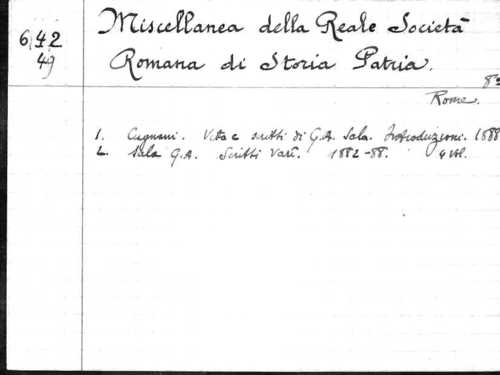 Miscellanea della Reale Società
6,42
49
Romana di Storia Patria.
8º
Rome.
1. Cugnoni. Vita e scritti di G.A. Sala. Introduzioni. 1888
2. Sala G.A. Scritti Vari. 1882-88. 4 vol.